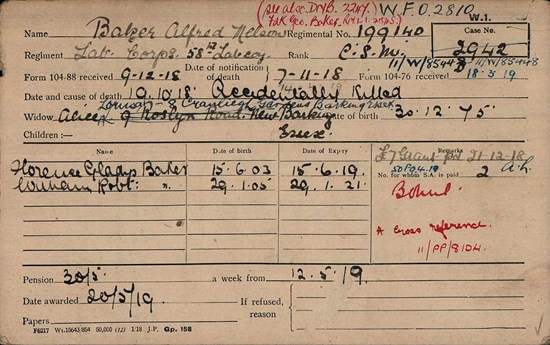 (see also DNB. 2247.
W.F.O. 2810
W.1.
Name Baker Alfred Nelson Regimental No. 199140
Case No.
2942
Regiment Lab. Corps. 58th Lab coy Rank C.S.M.
11/W/85448
Form 104-88 received 9-12-18 Date of notification of death 7-11-18 Form 104-76 received 18.3.19
Date and cause of death 10.10.18 Accidentally Killed
Widow Alice 9 Roslyn Road. New Barking Date of birth 30.12.75
Children:— Essex
Date of Birth Date of Expiry Remarks
Florence Gladys Baker 15.6.03 15.6.19. £7 Grant pd 21-12-18
No. for whom S.A. is paid 2
William Robt: " 29.1.05 29.1.21.
A Cross reference
11/PP/8104.
Pension 30/5 a week from 12.5.19.
Date awarded 20/5/19. If refused, reason
Papers
F6217 Wt.15643/854 50,000 (12) 1/18 J.P. Gp. 158